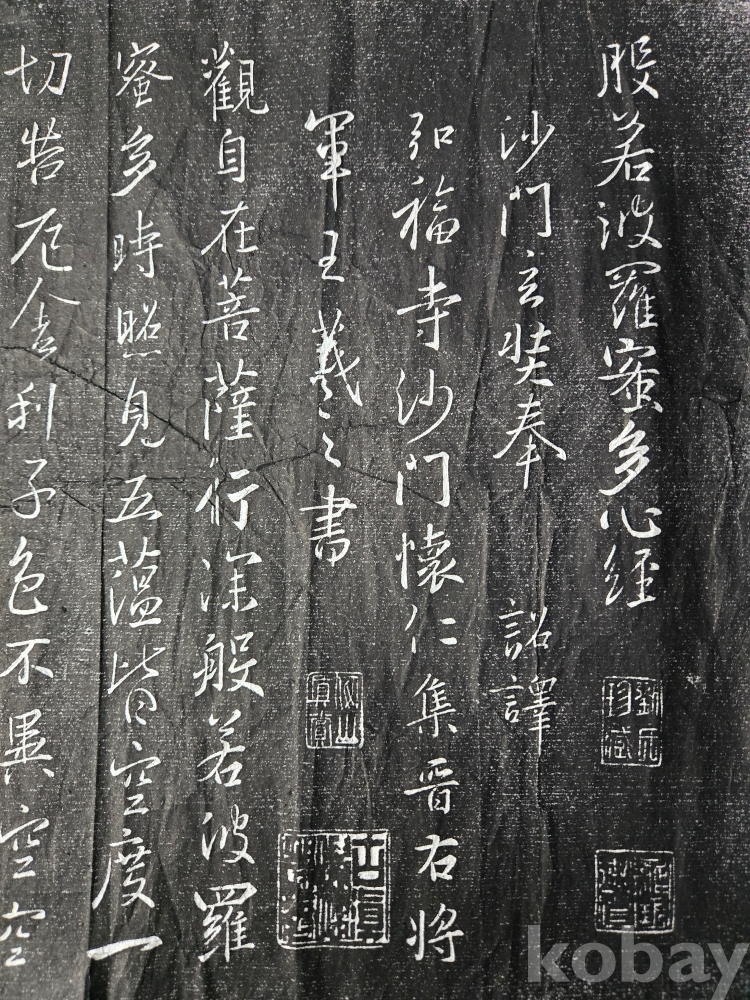 般若波羅蜜多心經
沙門玄奘奉 詔譯
弘福寺沙門懷仁集晉右將
軍王羲之書
觀自在菩薩行深般若波羅
蜜多時照見五蘊皆空度一
切苦厄舍利子色不異空空
kobay